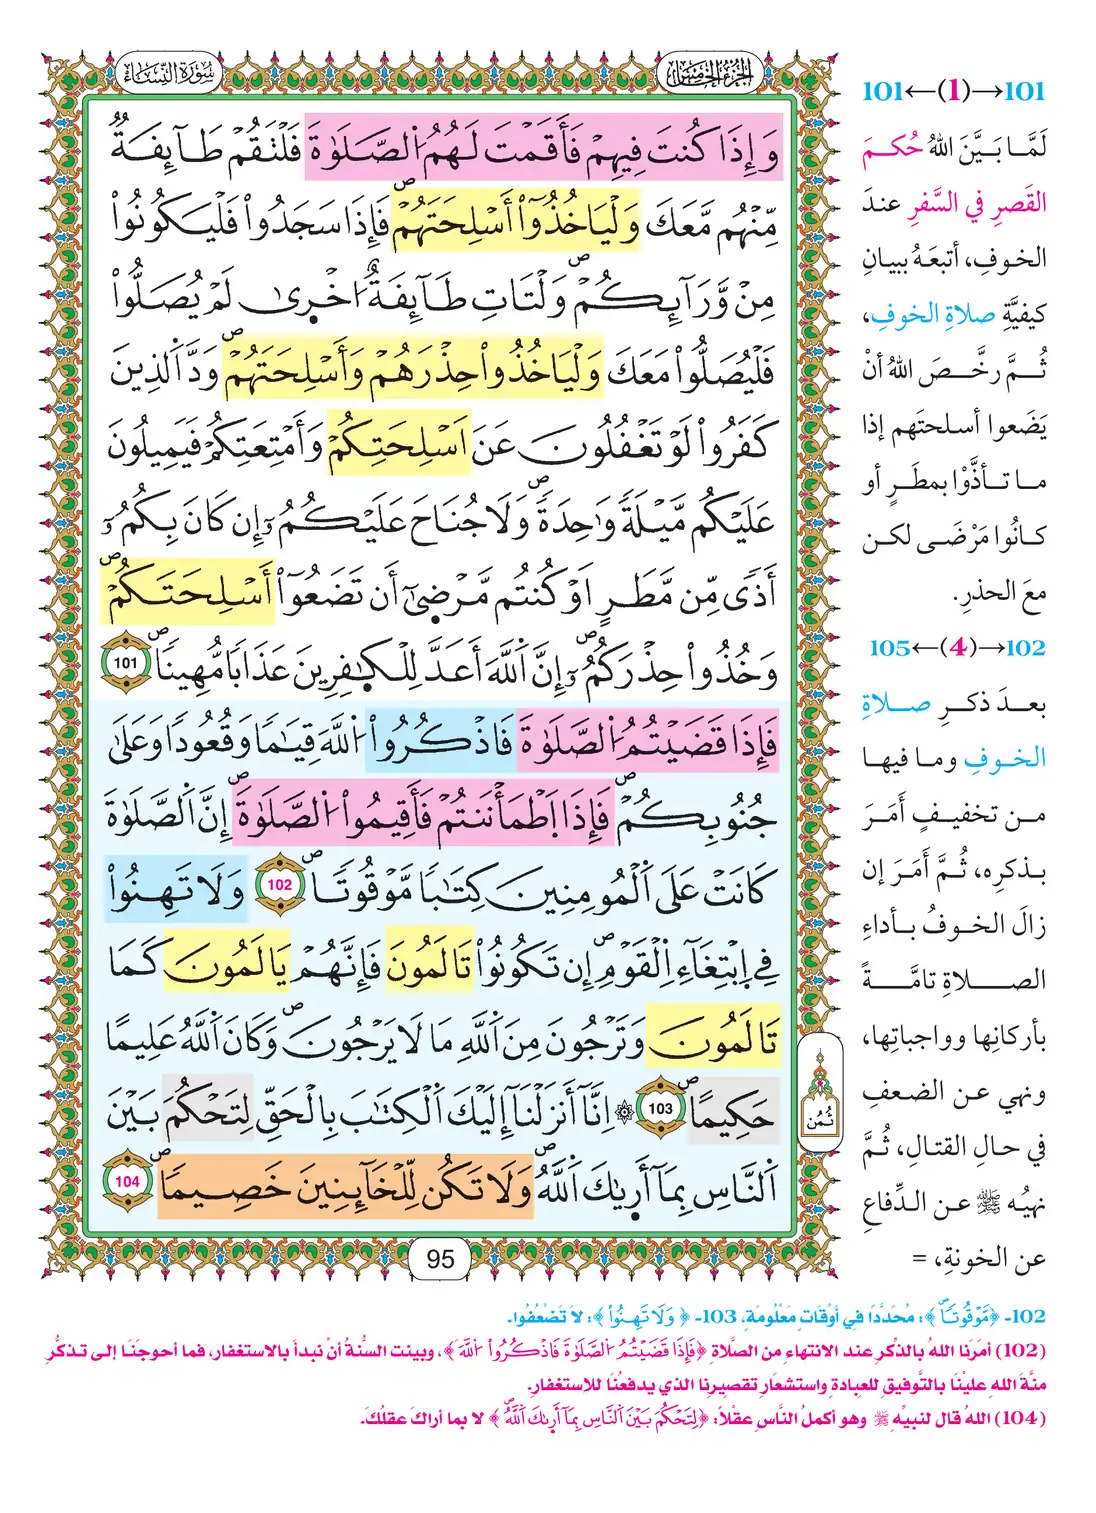 سُورَةُ النِّسَاءِ
الجُزْءُ الخَامِسُ
وَإِذَا كُنتَ فِيهِمْ فَأَقَمْتَ لَهُمُ اُ۬لصَّلَوٰةَ فَلْتَقُمْ طَآئِفَةٞ
مِّنْهُم مَّعَكَ وَلْيَاخُذُوٓاْ أَسْلِحَتَهُمْۖ فَإِذَا سَجَدُواْ فَلْيَكُونُواْ
مِنْ وَّرَآئِكُمْۖ وَلْتَاتِ طَآئِفَةٌ ا۟خْر۪يٰ لَمْ يُصَلُّواْ
فَلْيُصَلُّواْ مَعَكَ وَلْيَاخُذُواْ حِذْرَهُمْ وَأَسْلِحَتَهُمْۖ وَدَّ اَ۬لذِينَ
كَفَرُواْ لَوْ تَغْفُلُونَ عَنَ اَسْلِحَتِكُمْ وَأَمْتِعَتِكُمْ فَيَمِيلُونَ
عَلَيْكُم مَّيْلَةٗ وَٰحِدَةٗۖ وَلَا جُنَاحَ عَلَيْكُمُۥٓ إِن كَانَ بِكُمُۥٓ
أَذٗي مِّن مَّطَرٍ اَوْ كُنتُم مَّرْض۪يٰٓ أَن تَضَعُوٓاْ أَسْلِحَتَكُمْۖ
وَخُذُواْ حِذْرَكُمُۥٓۖ إِنَّ اَ۬للَّهَ أَعَدَّ لِلْكٰ۪فِرِينَ عَذَاباٗ مُّهِيناٗۖ 101
فَإِذَا قَضَيْتُمُ اُ۬لصَّلَوٰةَ فَاذْكُرُواْ اُ۬للَّهَ قِيَٰماٗ وَقُعُوداٗ وَعَلَىٰ
جُنُوبِكُمْۖ فَإِذَا اَ۪طْمَأْنَنتُمْ فَأَقِيمُواْ اُ۬لصَّلَوٰةَۖ إِنَّ اَ۬لصَّلَوٰةَ
كَانَتْ عَلَى اَ۬لْمُومِنِينَ كِتَٰباٗ مَّوْقُوتاٗۖ 102 وَلَا تَهِنُواْ
فِي اِ۪بْتِغَآءِ اِ۬لْقَوْمِۖ إِن تَكُونُواْ تَالَمُونَ فَإِنَّهُمْ يَالَمُونَ كَمَا
تَالَمُونَ وَتَرْجُونَ مِنَ اَ۬للَّهِ مَا لَا يَرْجُونَۖ وَكَانَ اَ۬للَّهُ عَلِيماً
حَكِيماٗۖ 103 ۞ اِنَّآ أَنزَلْنَآ إِلَيْكَ اَ۬لْكِتَٰبَ بِالْحَقِّ لِتَحْكُمَ بَيْنَ
اَ۬لنَّاسِ بِمَآ أَر۪يٰكَ اَ۬للَّهُۖ وَلَا تَكُن لِّلْخَآئِنِينَ خَصِيماٗۖ 104
95
ثُمُن
101←(1)→101
لَمَّا بَيَّنَ اللهُ حُكمَ
القَصرِ في السَّفرِ عندَ
الخوفِ، أتبعَهُ ببيانِ
كيفيَّةِ صلاةِ الخوفِ،
ثُمَّ رخَّصَ اللهُ أنْ
يَضَعوا أسلحتَهم إذا
ما تأذَّوْا بمطَرٍ أو
كانُوا مَرْضَى لكن
معَ الحذرِ.
105←(4)→102
بعدَ ذكرِ صلاةِ
الخوفِ وما فيها
من تخفيفٍ أَمَرَ
بذكرِه، ثُمَّ أَمَرَ إن
زالَ الخوفُ بأداءِ
الصلاةِ تامَّةً
بأركانِها وواجباتِها،
ونهي عن الضعفِ
في حالِ القتالِ، ثُمَّ
نهيُه ﷺ عن الدِّفاعِ
عن الخونةِ، =
102- ﴿مَّوْقُوتاٗۖ﴾: مُحَدَّدًا فِي أوْقَاتٍ مَعْلُومَةٍ، 103- ﴿وَلَا تَهِنُواْ﴾: لَا تَضْعُفُوا.
(102) أمرَنا اللهُ بالذِّكرِ عند الانتهاءِ من الصَّلاةِ ﴿فَإِذَا قَضَيْتُمُ اُ۬لصَّلَوٰةَ فَاذْكُرُواْ اُ۬للَّهَ﴾، وبينت السُّنةُ أنْ نبدأَ بالاستغفارِ، فما أحوجنَا إلى تذكُّرِ
منَّةَ اللهِ علينَا بالتَّوفيقِ للعبادةِ واستشعَارِ تقصيرِنا الذي يدفعُنَا للاستغفارِ.
(104) اللهُ قال لنبيِّهِ ﷺ وهو أكملُ النَّاسِ عقْلاً: ﴿لِتَحْكُمَ بَيْنَ اَ۬لنَّاسِ بِمَآ أَر۪يٰكَ اَ۬للَّهُۖ﴾ لا بما أراكَ عقلُكَ.